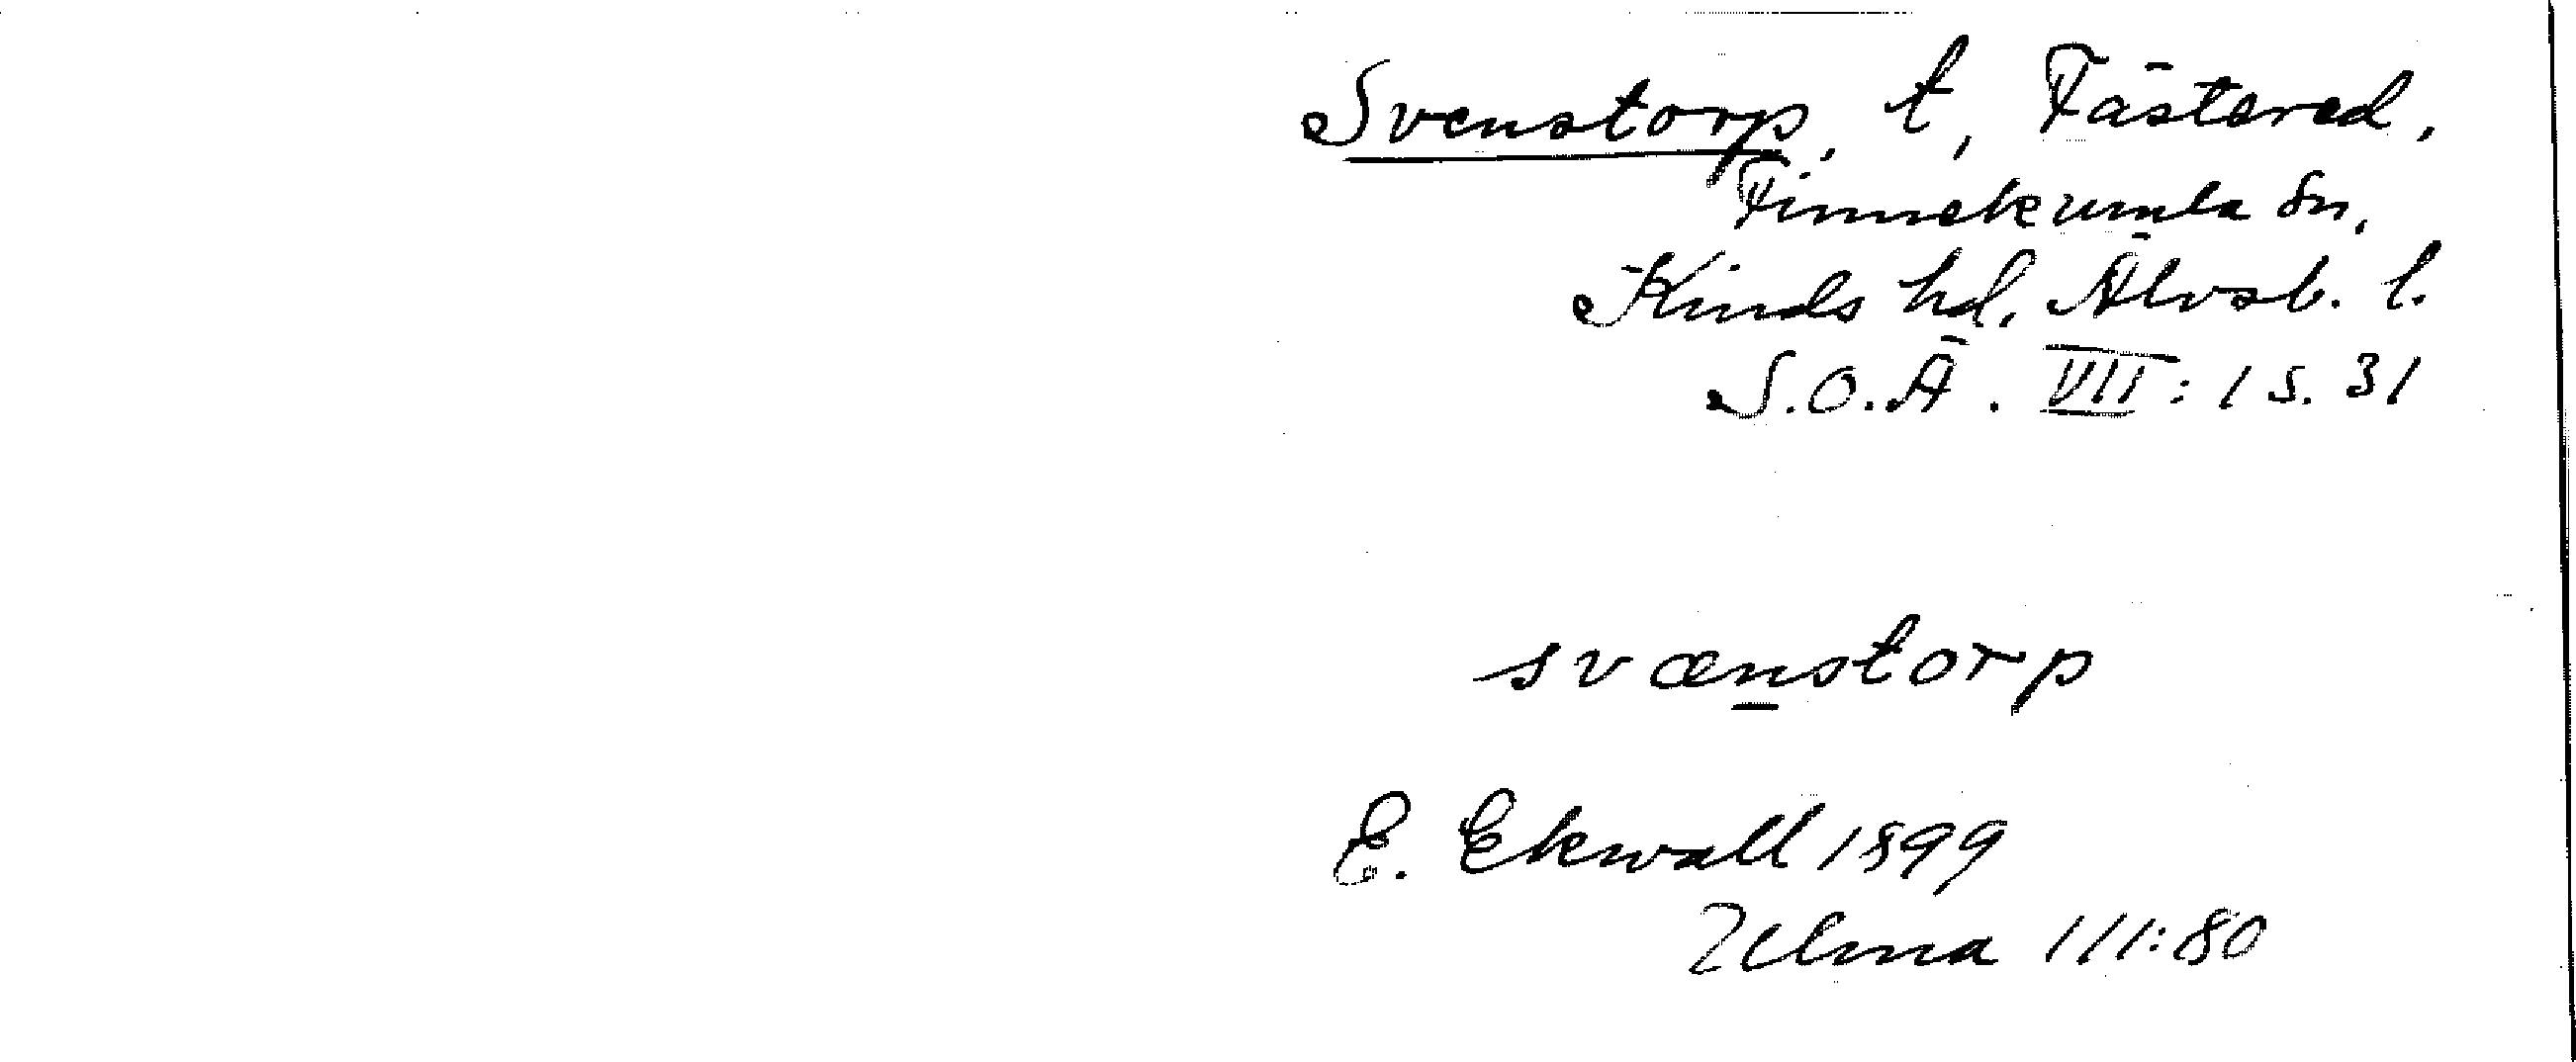 Svenstorp, t, Fästered,
Finnekumla sn,
Kinds hd, Älvsb. l.
S.O.Ä. VII: 1 s. 31
svænstorp
E. Ekwall 1899
Ulma 111:80